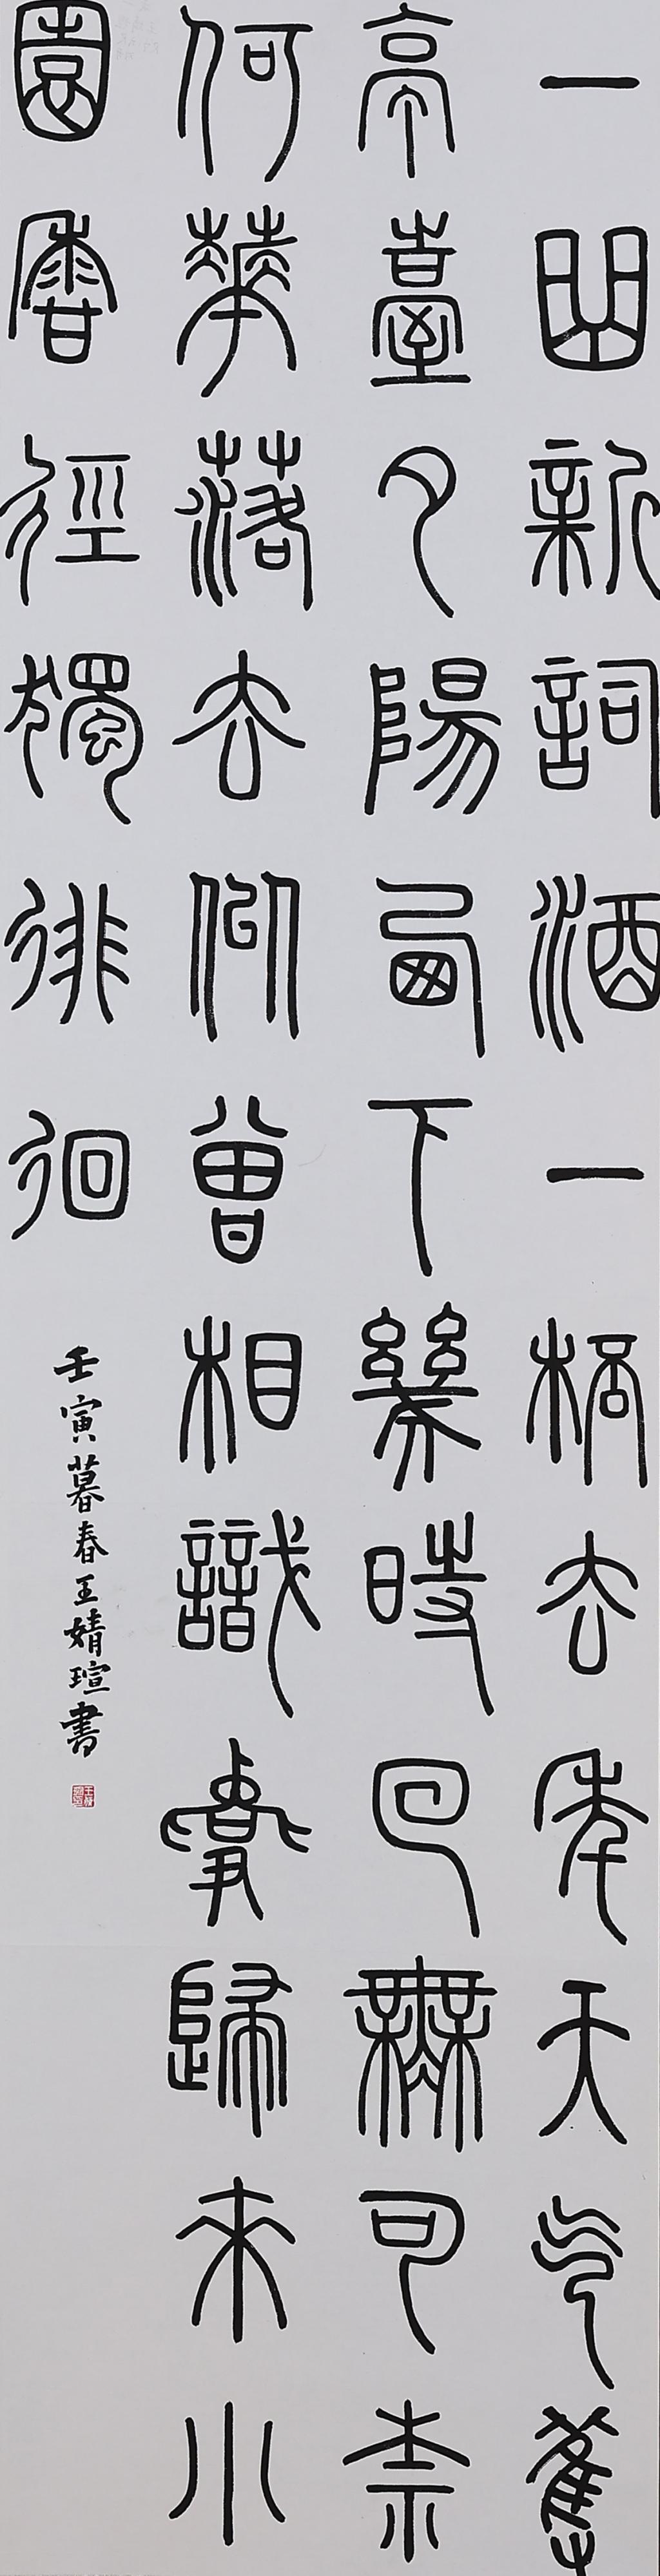 一曲新詞酒一桮去年天气舊
亭臺夕陽西下幾時回無可柰
何華落去似曾相識燕歸來小
園香徑獨徘徊
壬寅暮春王婧瑄書